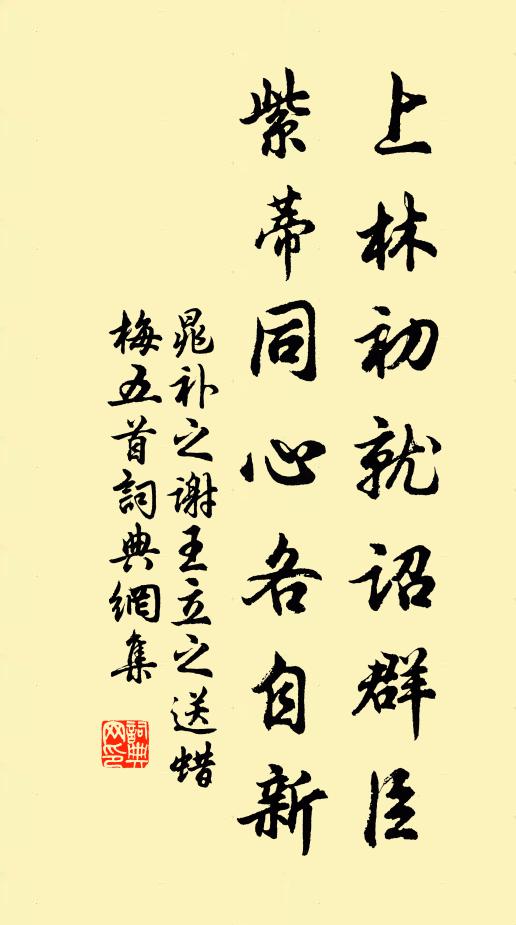 上林初就詔群臣
紫蒂同心各自新
晁补之谢王立之送蜡
梅五首詞典網集
詞典網印